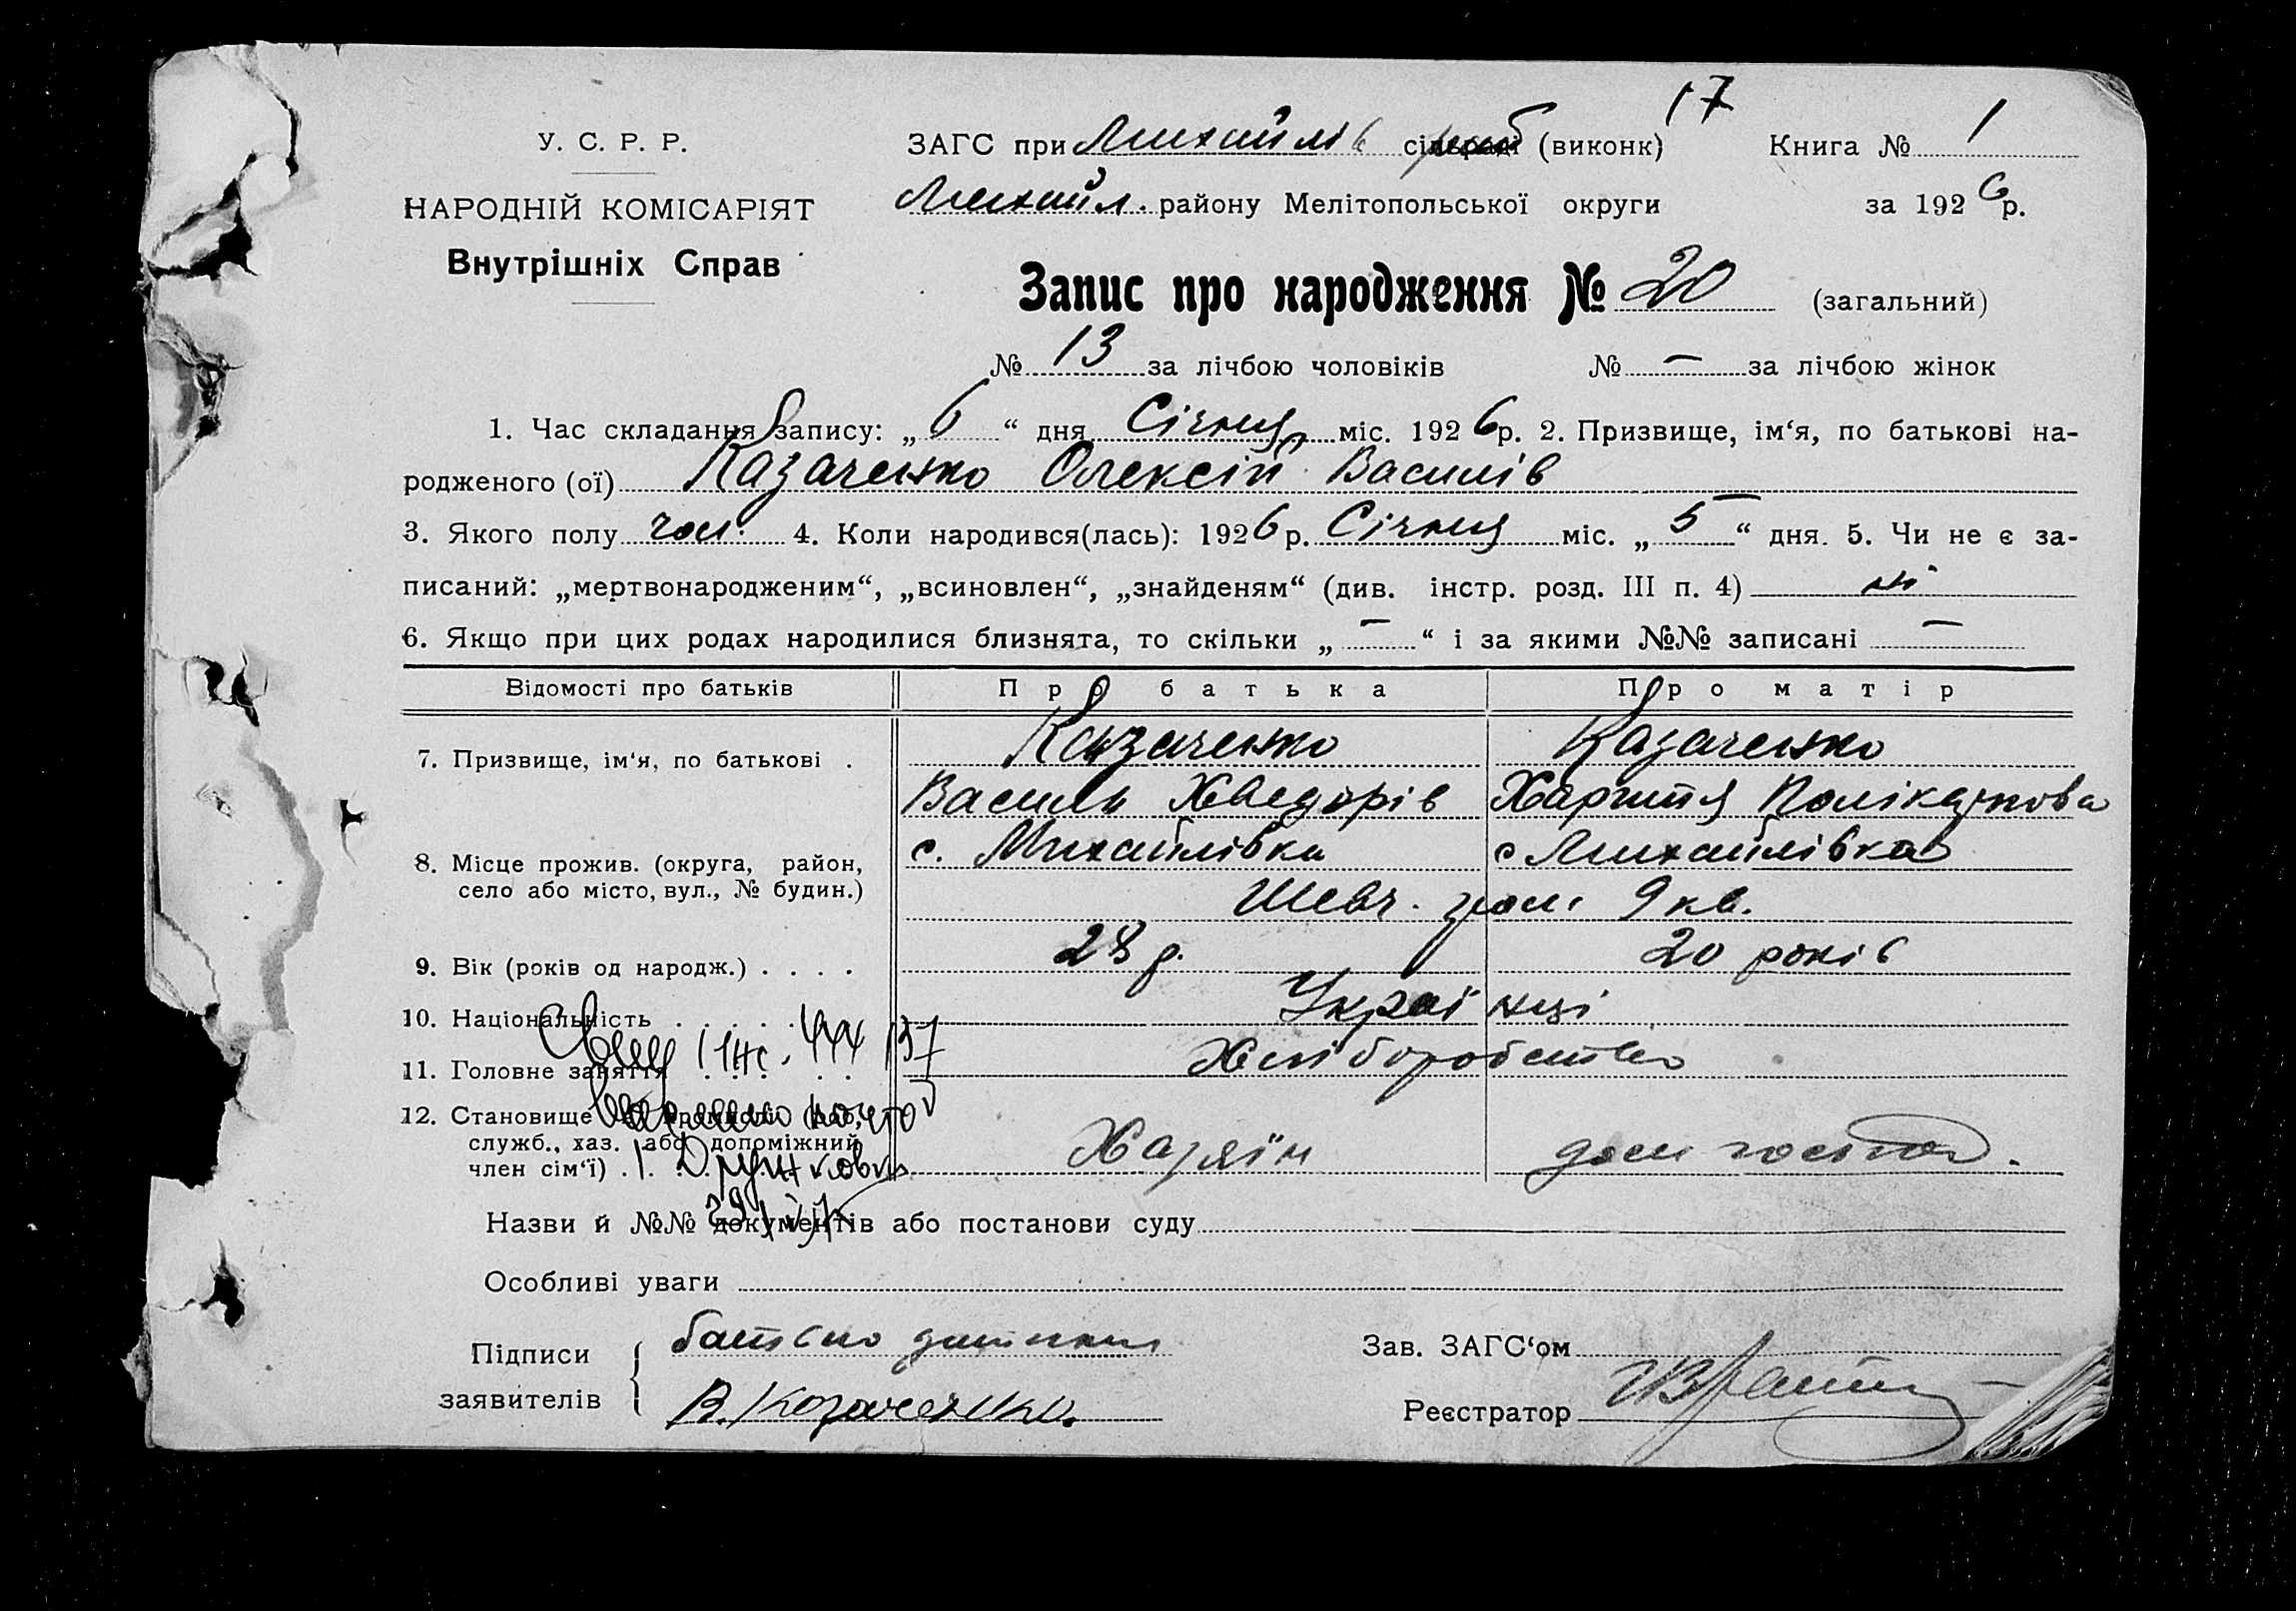 17
У. С. Р. Р.
ЗАГС при Михайлів сільраді (виконк) Книга № 1
НАРОДНІЙ КОМІСАРІЯТ
Михайл. району Мелітопольської округи за 1926 р.
Внутрішніх Справ
Запис про народження № 20 (загальний)
№ 13 за лічбою чоловіків № — за лічбою жінок
1. Час складання запису: „6“ дня Січня міс. 1926 р. 2. Призвище, ім‘я, по батькові на-
родженого (ої) Казаченко Олексій Василів
3. Якого полу чол. 4. Коли народився(лась): 1926 р. Січня міс. „5“ дня. 5. Чи не є за-
писаний: „мертвонародженим“, „всиновлен“, „знайденям“ (див. інстр. розд. III п. 4) ні
6. Якщо при цих родах народилися близнята, то скільки „—“ і за якими №№ записані —
Відомості про батьків Про батька Про матір
7. Призвище, ім‘я, по батькові . Казаченко Казаченко
Василь Хведорів Харитя Полікарпова
8. Місце прожив. (округа, район, с. Михайлівка с Михайлівка
село або місто, вул., № будин.) Шевч. гром 9 кв.
9. Вік (років од народж.) . . . . 28 р. 20 років
10. Національність . . . . . Українці
11. Головне заняття . . . . . Хліборобство
12. Становище в промислі (роб.,
служб., хаз. або допоміжний
член сім‘ї) . Хазяїн дом господ.
Дружковка
Назви й №№ документів або постанови суду
Особливі уваги
Підписи заявителів батько дитини
В. Козаченко
Зав. ЗАГС‘ом
Реєстратор